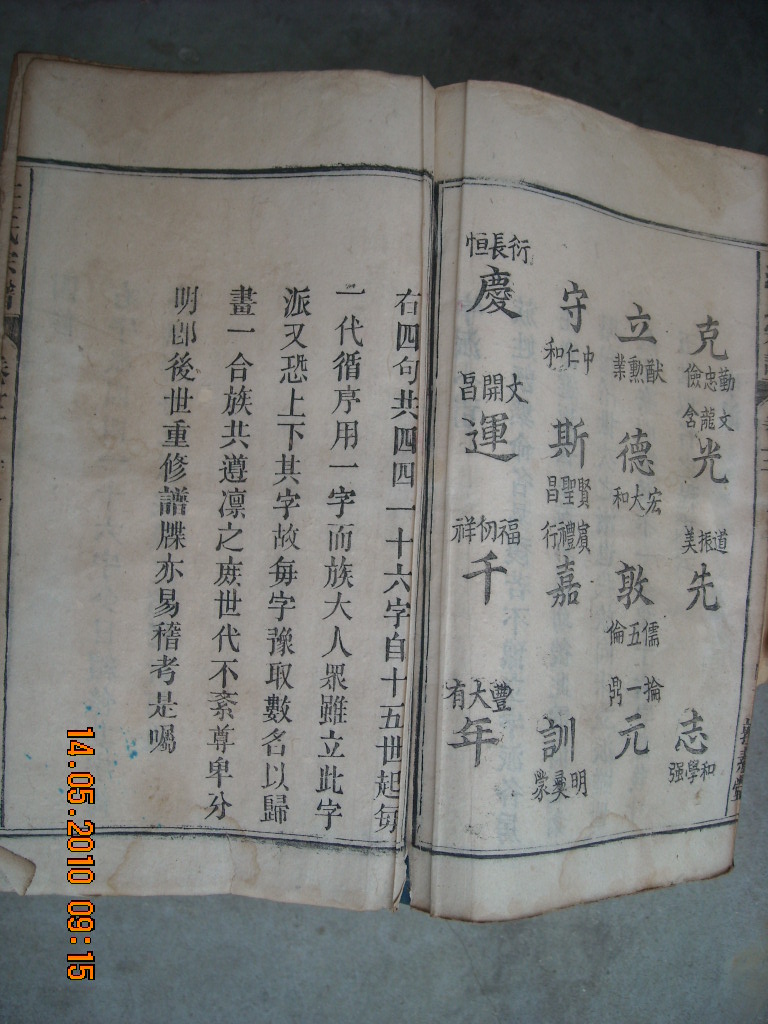 克勤忠儉文龍含光道振美先志和學强
立猷勳業德宏大和敦儒五倫掄一鼎元
守中仁和斯賢聖昌賓禮行嘉訓明彝蒙
衍長恒慶文開昌運福仞祥千豐大有年
右四句共四四一十六字自十五世起每
一代循序用一字而族大人眾雖立此字
派又恐上下其字故每字豫取數名以歸
畫一合族共遵凛之庶世代不紊尊卑分
明卽後世重修譜牒亦易稽考是囑
14.05.2010 09:15